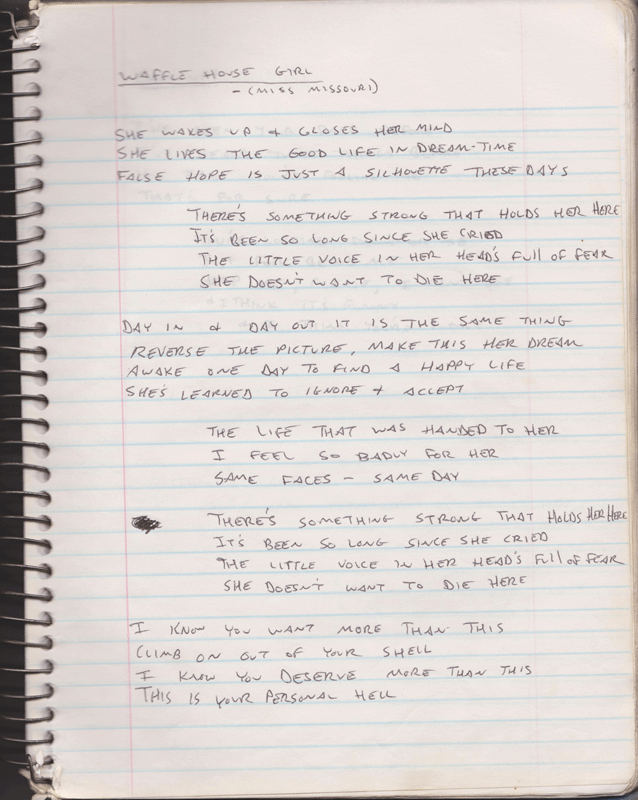 WAFFLE HOUSE GIRL
- (MISS MISSOURI)
SHE WAKES UP & CLOSES HER MIND
SHE LIVES THE GOOD LIFE IN DREAM-TIME
FALSE HOPE IS JUST A SILHOUETTE THESE DAYS
THERE'S SOMETHING STRONG THAT HOLDS HER HERE
IT'S BEEN SO LONG SINCE SHE CRIED
THE LITTLE VOICE IN HER HEAD'S FULL OF FEAR
SHE DOESN'T WANT TO DIE HERE
DAY IN & DAY OUT IT IS THE SAME THING
REVERSE THE PICTURE, MAKE THIS HER DREAM
AWAKE ONE DAY TO FIND A HAPPY LIFE
SHE'S LEARNED TO IGNORE & ACCEPT
THE LIFE THAT WAS HANDED TO HER
I FEEL SO BADLY FOR HER
SAME FACES - SAME DAY
THERE'S SOMETHING STRONG THAT HOLDS HER HERE
IT'S BEEN SO LONG SINCE SHE CRIED
THE LITTLE VOICE IN HER HEAD'S FULL OF FEAR
SHE DOESN'T WANT TO DIE HERE
I KNOW YOU WANT MORE THAN THIS
CLIMB ON OUT OF YOUR SHELL
I KNOW YOU DESERVE MORE THAN THIS
THIS IS YOUR PERSONAL HELL